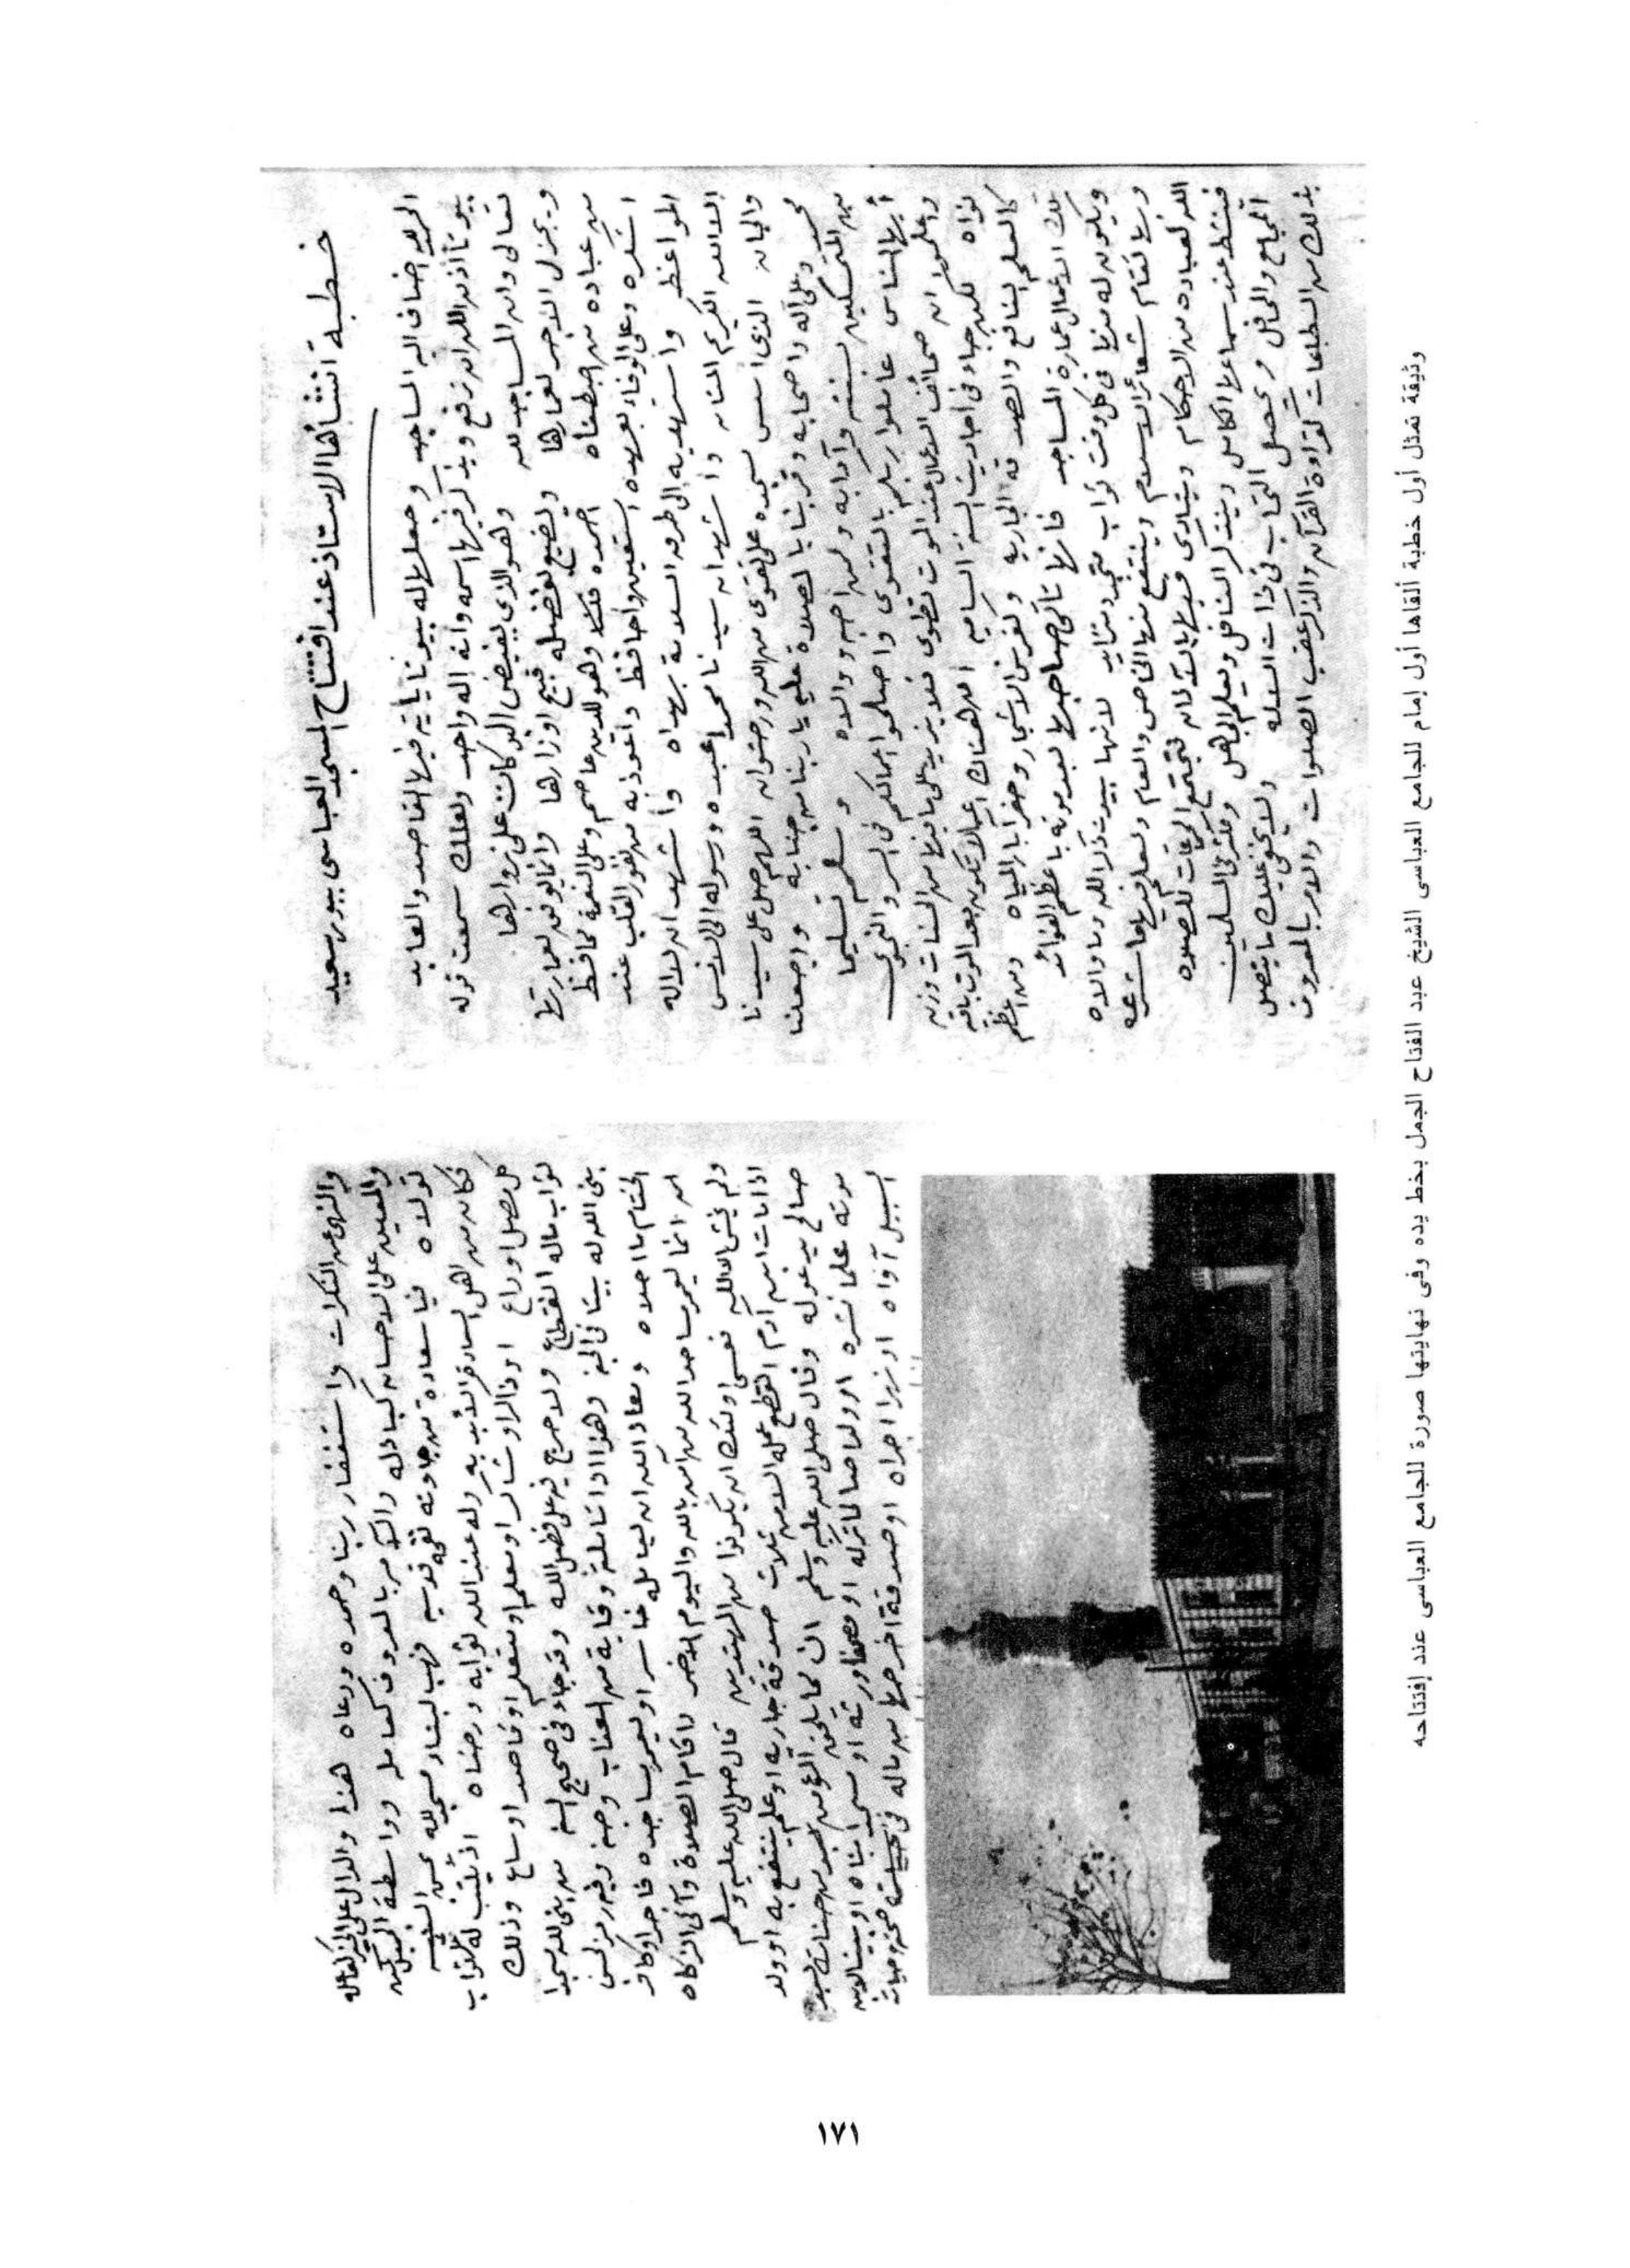 خطبة أنشأها الاستاذ عند افتتاح المسجد العباسى ببور سعيد
الحمد لله اضاف اليه المساجد وجعلها له بيوتا يأتيه فيها القاصد والعابد
بيوتا أذن الله ان ترفع ويذكر فيها اسمه وأنه إله واحد ولعلك سمعت قوله
تعالى وان المساجد لله وهو الذى يفيض البركات على زوارها
ويجزل الاجر لعمارها ويضيع بفضله قبيح اوزارها وانما يوفق لعمارتها
من عباده من اصطفاه احمده فهو للدين عاصم وعلى النعمة محافظ
اشكره وعلى الوفاء بعهده استعين واحافظ وأعوذ به من نفور القلب عند
المواعظ واستهديه الى طرق السلامة بهداه وأشهد ان لا اله
الا الله الكريم المنان وأشهد ان سيدنا محمدا عبده ورسوله الى الانس
والجان الذى اسس مسجده على تقوى من الله ورضوان اللهم صل على سيدنا
محمد وعلى آله واصحابه وقربنا بالصلاة عليه يا ربنا من جنابه واجعلنا
من المتمسكين بسنته وآدابه ومن احبه ووالاه وسلم تسليما
أيها الناس عاملوا ربكم بالتقوى واصلحوا اعمالكم فى السر والنجوى
واعلموا ان صحائف الاعمال عند الموت تطوى فلا يزيد على ما فيها من الحسنات وزن
نواه لكن جاء فى احاديث السنة الساميه ان هناك اعمالا تكون بعد الموت باقيه
كالعلم النافع والصدقه الجاريه وكغرس الاشجار وحفر آبار المياه ومن اعظم
تلك الاعمال عمارة المساجد فانها تأتى صاحبها بعد موته باعظم الفوائد
ويكون له منها فى كل وقت ثواب متجدد متزايد لانها بيوت ذكر الله وما والاه
وبها تقام شعائر الاسلام وينتفع منها الخاص والعام ويعلم فيها ما شرعه
الله لعباده من الاحكام وينادى فيها بالآذان فتجتمع الجماعات للصلاه
فينشط عند سماعها الكاسل ويتذكر الغافل ويعلم الجاهل وتكثر فى المسلمين
المجامع والمحافل ويحصل التحاب فى ذات الاله ولا يخفى عليك ما يتصل
بذلك من الطاعات كقراءة القرآن والذكر عقب الصلوات والامر بالمعروف
والنهى عن المنكرات واستغفار ربنا وحمده ودعاه هذا والدال على الخير كفاعله
والمعين على الاحسان كباذله والآمر بالمعروف كعامله وواسطة
تولاه فيا سعادة من جادت نفسه فهب لبناء مسجد لله
فكان من اهل السعادة الأبديه وله عند الله ثوابه ورضاه اذ يكتب له ثواب
كل مصل او راع او ذاكر او شاكر او معلم او متعلم او قاصد او ساع وذلك
ثواب ماله انقطاع ولا حرج على فضل الله وقد جاء فى صحيح السنه من بنى لله مسجدا
بنى الله له بيتا فى الجنه وهذا اذا تأملته وقاية من العذاب وجنه وفيه رمز لحسن
الختام ما احلاه ومعاذ الله ان يعامله خاسر او يعمر مساجده فاجر او كافر
انما يعمر مساجد الله من آمن بالله واليوم الآخر واقام الصلاة وآتى الزكاه
ولم يخش الا الله فعسى اولئك ان يكونوا من المهتدين قال صلى الله عليه وسلم
اذا مات ابن آدم انقطع عمله الا من ثلاث صدقة جاريه او علم ينتفع به او ولد
صالح يدعو له وقال صلى الله عليه وسلم ان مما يلحق المؤمن من حسناته بعد
موته علما نشره او ولدا صالحا تركه او مصحفا ورثه او مسجدا بناه او بيتا لابن
السبيل آواه او نهرا اجراه او صدقة اخرجها من ماله فى صحته وحياته
وثيقة تمثل أول خطبة ألقاها أول إمام للجامع العباسى الشيخ عبد الفتاح الجمل بخط يده وفى نهايتها صورة للجامع العباسى عند إفتتاحه
١٧١